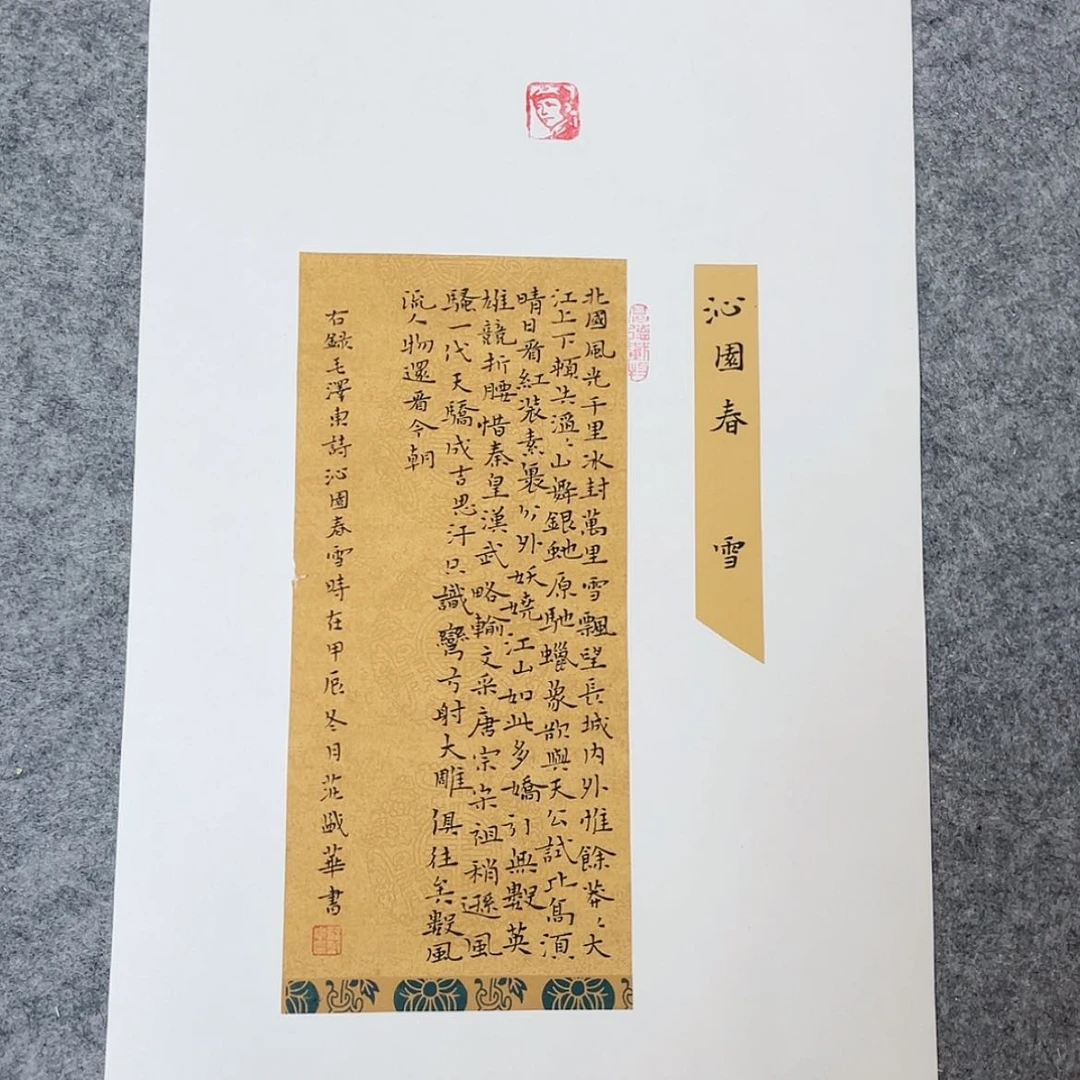 沁園春 雪
北國風光千里冰封萬里雪飄望長城内外惟餘莽々大
江上下頓失滔々山舞銀蛇原馳蠟象欲與天公試比高須
晴日看紅裝素裹分外妖嬈江山如此多嬌引無數英
雄競折腰惜秦皇漢武略輸文采唐宗宋祖稍遜風
騷一代天驕成吉思汗只識彎弓射大雕俱往矣數風
流人物還看今朝
右録毛澤東詩沁園春雪時在甲辰冬月莊盛華書